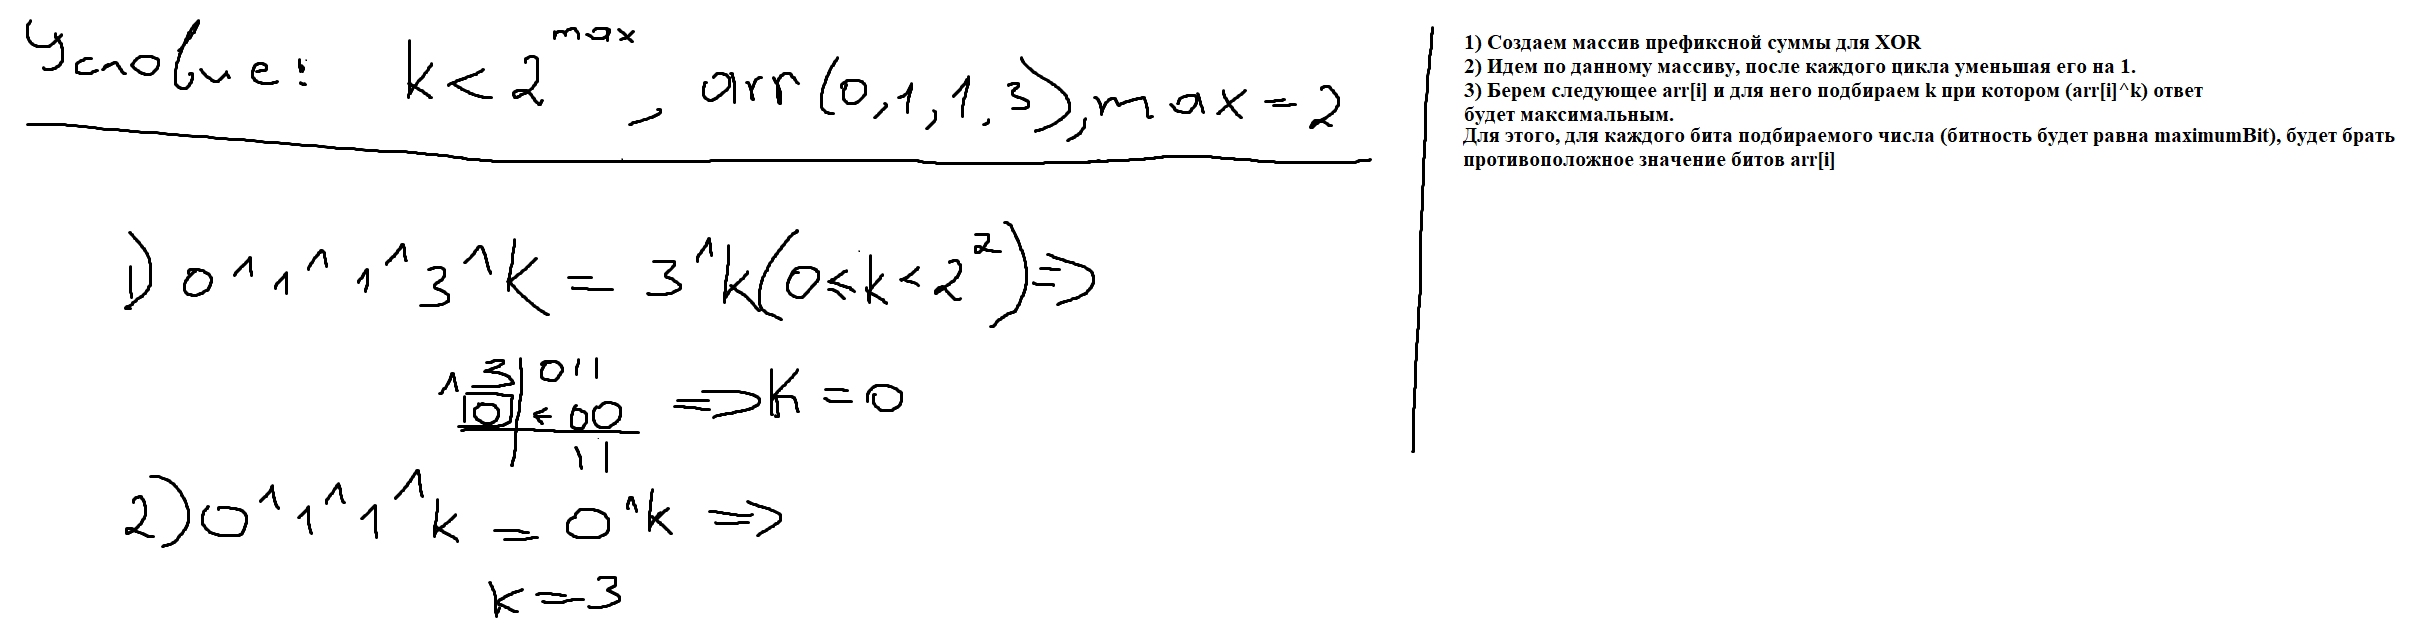 Условие: k < 2^max, arr(0,1,1,3), max = 2
1) 0^1^1^3^k = 3^k(0≤k<2²) =>
^ 3 | 011
0 ← 00 => k = 0
11
2) 0^1^1^k = 0^k =>
k = 3
1) Создаем массив префиксной суммы для XOR
2) Идем по данному массиву, после каждого цикла уменьшая его на 1.
3) Берем следующее arr[i] и для него подбираем k при котором (arr[i]^k) ответ
будет максимальным.
Для этого, для каждого бита подбираемого числа (битность будет равна maximumBit), будет брать
противоположное значение битов arr[i]